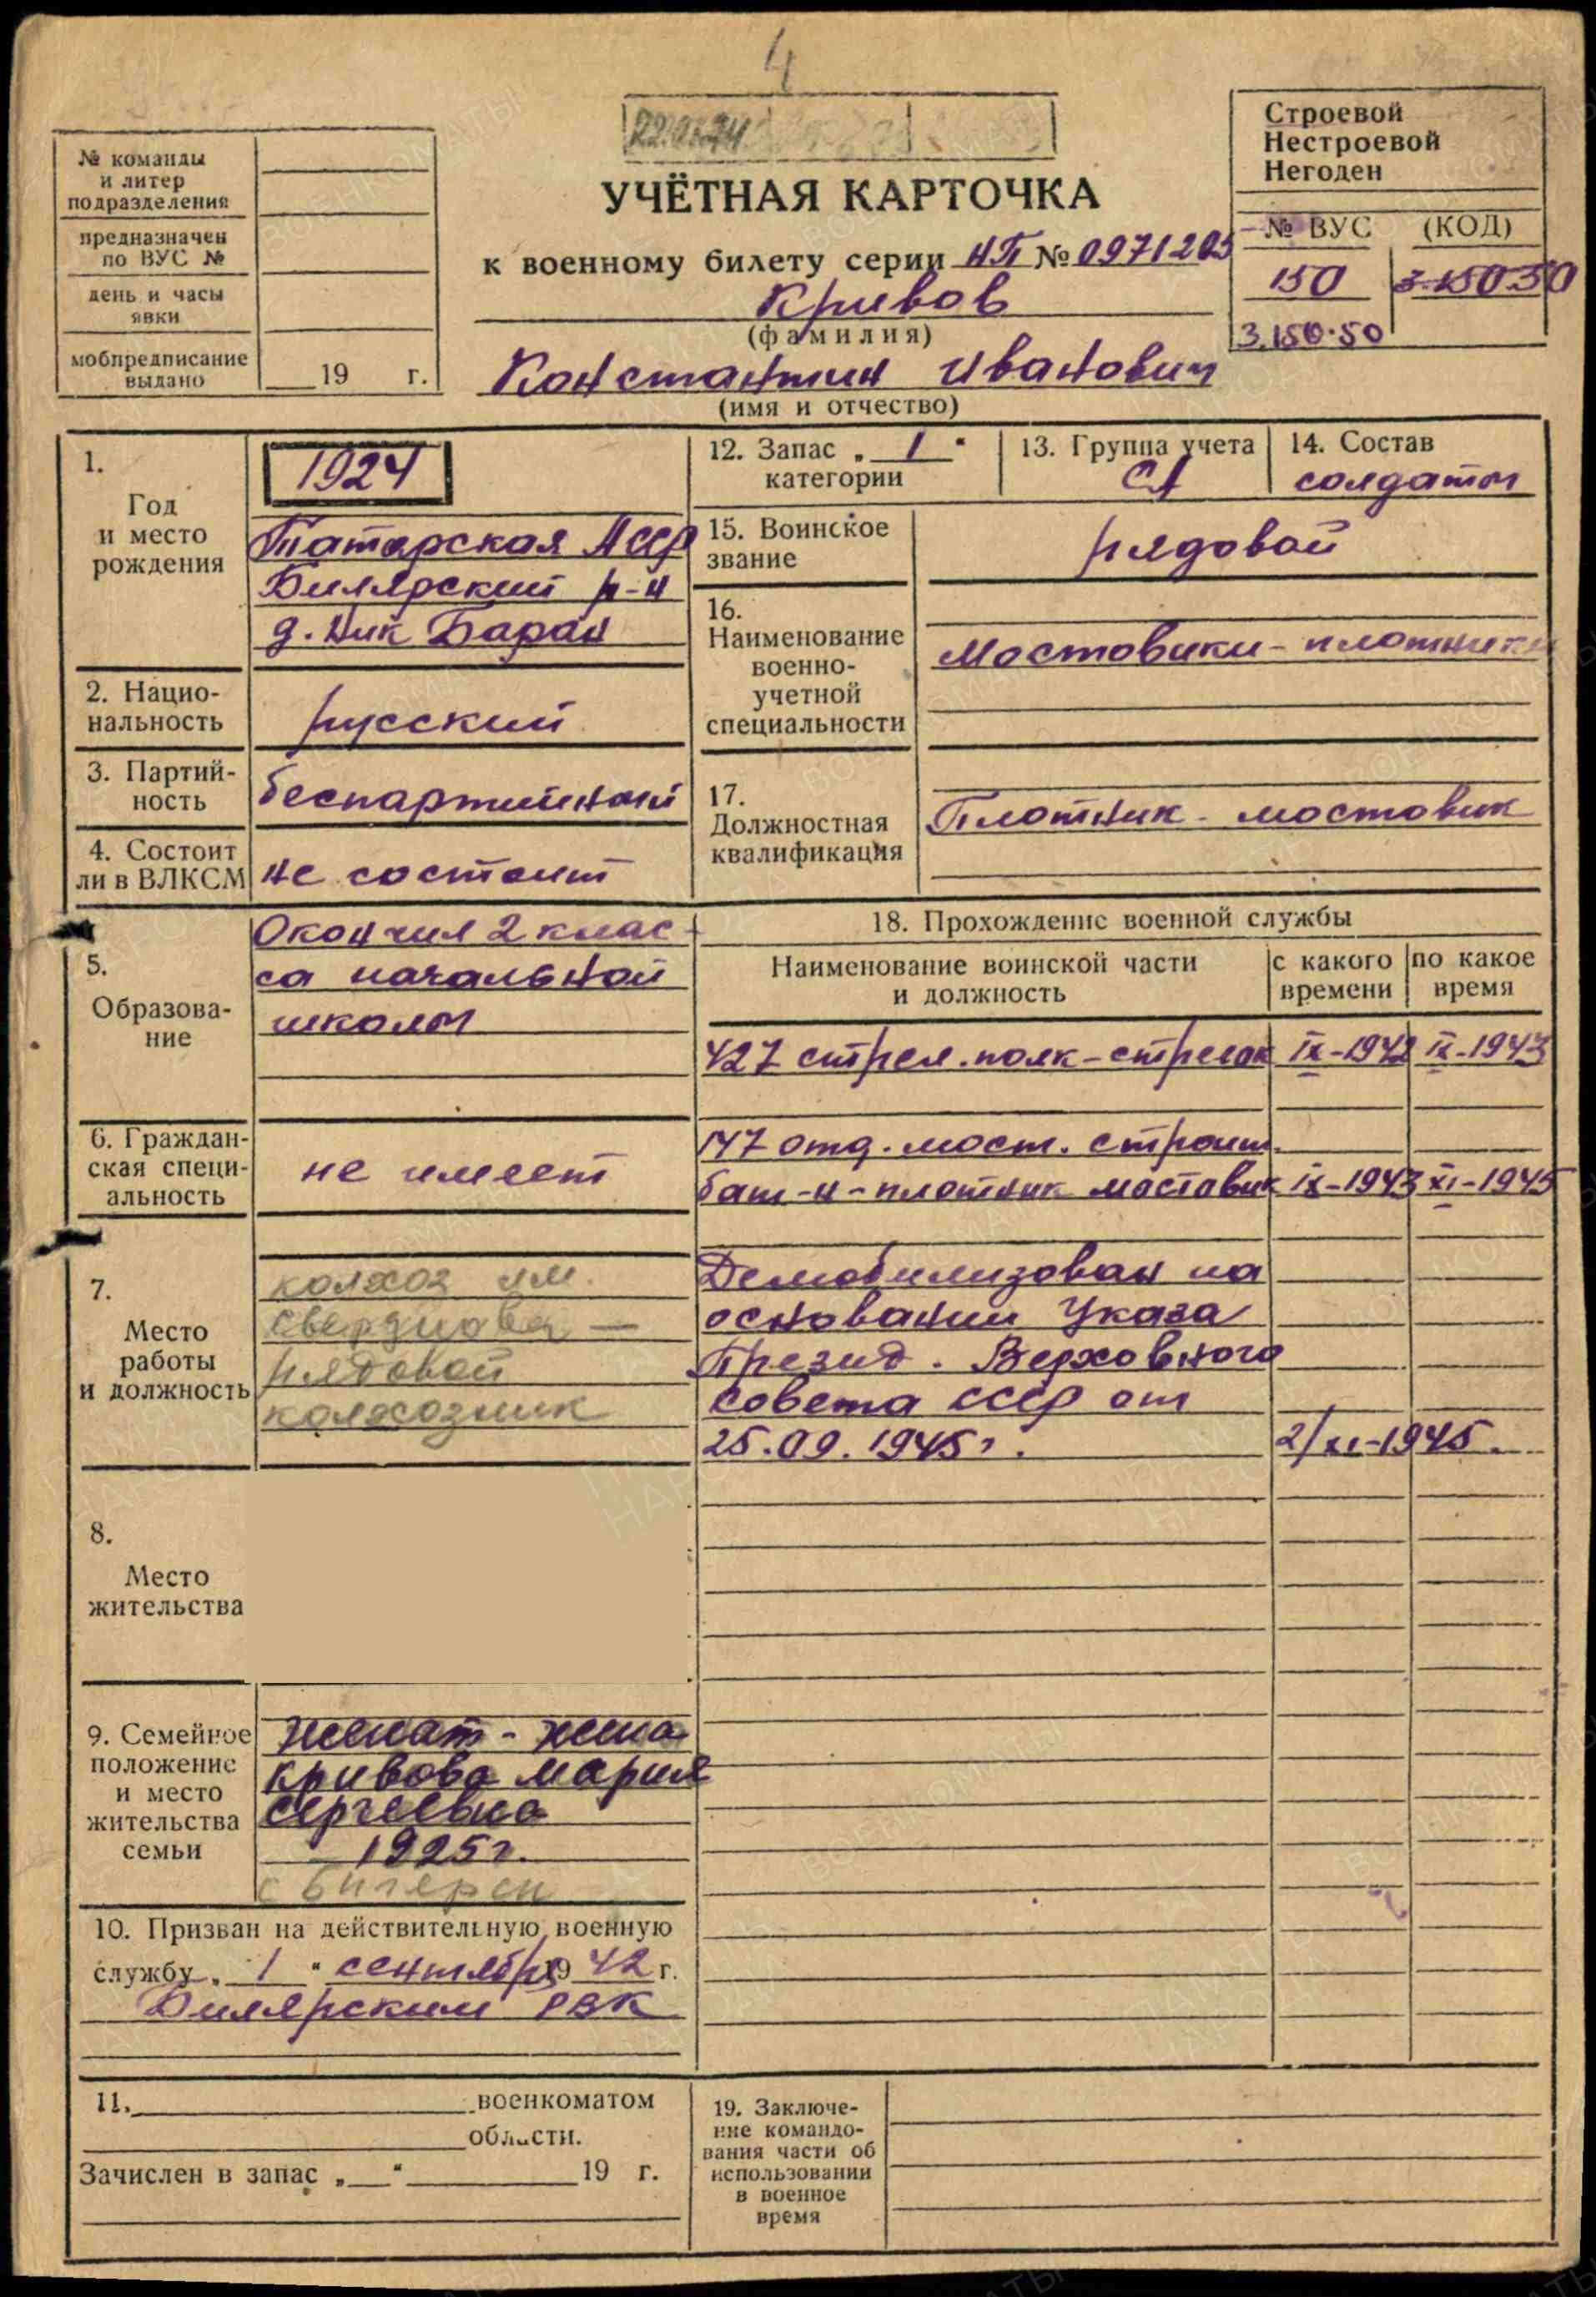 4
22.01.74
№ команды
и литер
подразделения
предназначен
по ВУС №
день и часы
явки
мобпредписание
выдано
19 г.
УЧЁТНАЯ КАРТОЧКА
к военному билету серии НП № 0971205
Кривов
(фамилия)
Константин Иванович
(имя и отчество)
Строевой
Нестроевой
Негоден
№ ВУС (КОД)
150 3-15050
3.150.50
1.
Год
и место
рождения
1924
Татарская АССР
Билярский р-н
д. Ник Баран
2. Нацио-
нальность
русский
3. Партий-
ность
беспартийный
4. Состоит
ли в ВЛКСМ
не состоит
5.
Образова-
ние
Окончил 2 клас-
са начальной
школы
6. Граждан-
ская специ-
альность
не имеет
7.
Место
работы
и должность
колхоз им.
Свердлова —
рядовой
колхозник
8.
Место
жительства
9. Семейное
положение
и место
жительства
семьи
женат - жена
Кривова Мария
Сергеевна
1925г.
10. Призван на действительную военную
службу „ 1 “ сентября 19 42 г.
Билярским РВК
11. военкоматом
области.
Зачислен в запас „ “ 19 г.
12. Запас „ 1 “
категории
13. Группа учета
СА
14. Состав
солдаты
15. Воинское
звание
рядовой
16.
Наименование
военно-
учетной
специальности
Мостовики - плотники
17.
Должностная
квалификация
Плотник - мостовик
18. Прохождение военной службы
Наименование воинской части
и должность
с какого
времени
по какое
время
427 стрел. полк - стрелок IX-1942 IX-1943
147 отд. мост. строит.
бат-н - плотник мостовик IX-1943 XI-1945
Демобилизован на
основании Указа
Презид. Верховного
Совета СССР от
25.09.1945г. 2/XI-1945.
19. Заключе-
ние командо-
вания части об
использовании
в военное
время